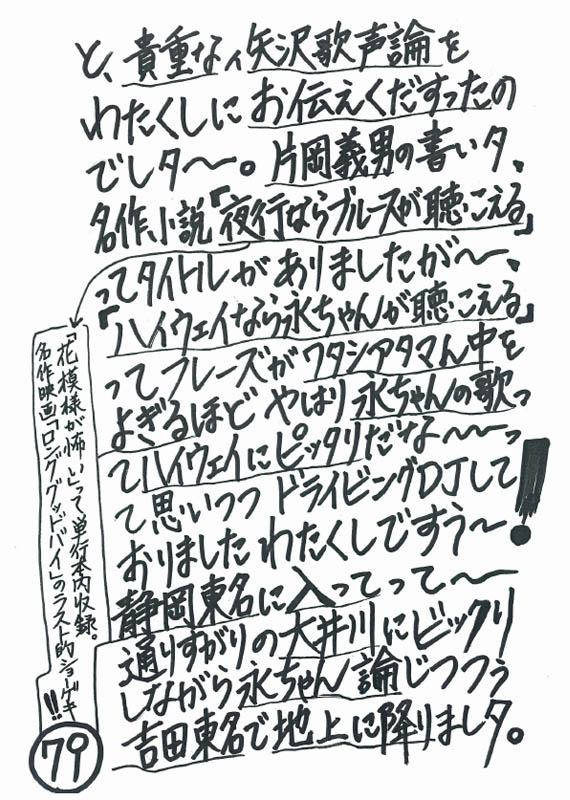 と、貴重なィ矢沢歌声論を
わたくしにお伝えくだすったの
でしタ〜〜。片岡義男の書いタ、
名作小説『夜行ならブルースが聴こえる』
ってタイトルがありましたが〜、
『ハイウェイなら永ちゃんが聴こえる』
ってフレーズがワタシアタマん中を
よぎるほどやはり永ちゃんの歌っ
てハイウェイにピッタリだな〜〜っ
て思いつつドライビングDJして
おりましたわたくしですう〜!
静岡東名に入ってって〜
通りすがりの大井川にビックリ
しながら永ちゃん論じつつぅ
吉田東名で地上に降りましタ。
「花模様が怖い」って単行本内収録。
名作映画「ロンググッドバイ」のラスト的ショーゲキ!!
79